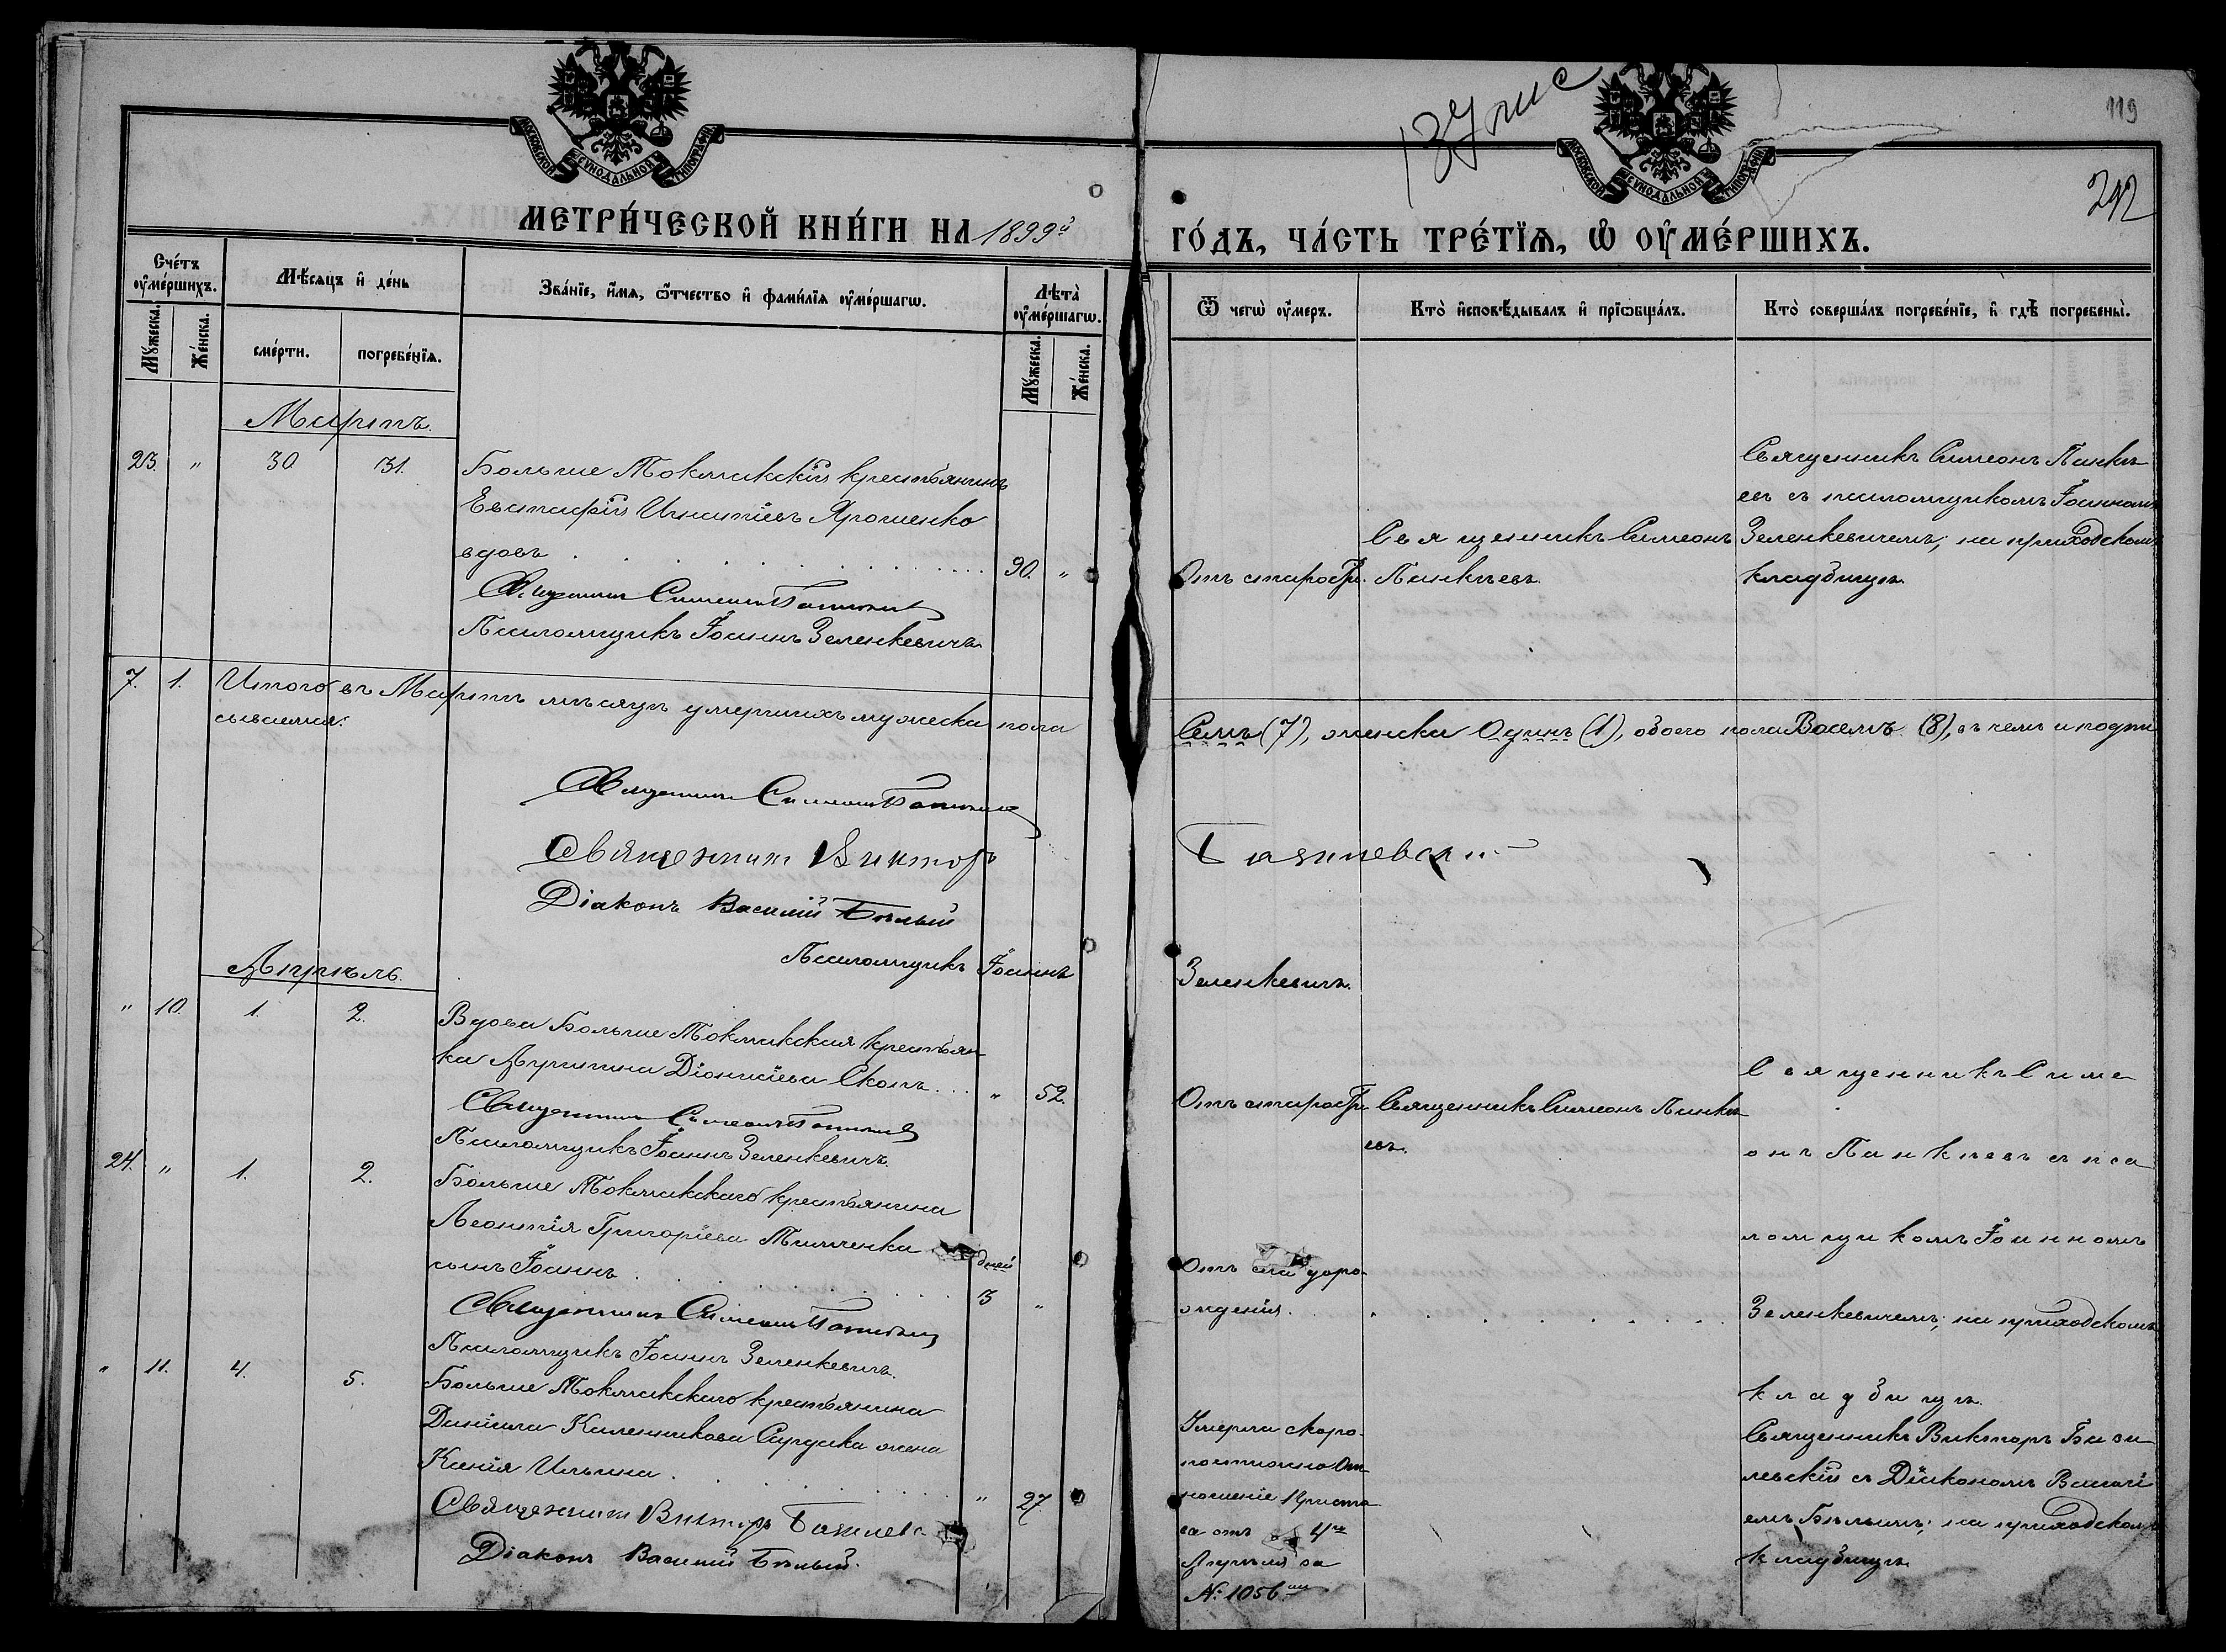 119
292
МОСКОВСКОЙ СѴНОДАЛЬНОЙ ТИПОГРАФІИ
МОСКОВСКОЙ СѴНОДАЛЬНОЙ ТИПОГРАФІИ
МЕТРИ́ЧЕСКОЙ КНИ́ГИ НА 1899й
ГО́ДЪ, ЧА́СТЬ ТРЕ́ТЇѦ, Ѡ ОУМЕ́РШИХЪ.
Сче́тъ оуме́ршихъ.
Мѣсяцъ и де́нь
Зва́нїе, и́мя, ѻ́тчество и фами́лїя оуме́ршагѡ.
Лѣта̀ оуме́ршагѡ.
Мꙋ́жеска.
Же́нска.
сме́рти.
погребе́нїя.
Мꙋ́жеска.
Же́нска.
Ѿ чегѡ̀ оу́меръ.
Кто̀ и҆сповѣ́дывалъ и҆ прїѡбща́лъ.
Кто̀ соверша́лъ погребе́нїе, и҆ гдѣ̀ погребены̀.
Мартъ.
23. " 30. 31. Больше Токмакскій крестьянинъ
Евстафій Игнатіевъ Ярошенко
вдовъ . . . 90. "
Священникъ Симеонъ
Псаломщикъ Іоаннъ Зеленкевичъ.
Отъ старости.
Священникъ Симеонъ
Панкѣевъ.
Священникъ Симеонъ Панкѣ-
евъ съ псаломщикомъ Іоанномъ
Зеленкевичемъ; на приходскомъ
кладбищѣ.
7. 1. Итого въ Мартѣ мѣсяцѣ умершихъ мужеска пола
Семь (7), женска Одинъ (1), обоего пола Восемь (8), въ чемъ и подпи
сываемся:
Священникъ Симеонъ
Священникъ Викторъ Базилевскій
Діаконъ Василій Бѣлый
Псаломщикъ Іоаннъ Зеленкевичъ.
Апрѣль.
" 10. 1. 2. Вдова Больше Токмакская крестьян-
ка Агрипина Діонисіева Скопъ. . . " 52.
Священникъ Симеонъ
Псаломщикъ Іоаннъ Зеленкевичъ.
Отъ старости
Священникъ Симеонъ Панкѣ-
евъ.
Священникъ Симе
онъ Панкѣевъ съ пса
ломщикомъ Іоанномъ
Зеленкевичемъ; на приходскомъ
кладбищѣ.
24. " 1. 2. Больше Токмакскаго крестьянина
Леонтія Григоріева Тимченка
сынъ Іоаннъ . . . дней 3 "
Священникъ Симеонъ
Псаломщикъ Іоаннъ Зеленкевичъ.
Отъ
ождения.
" 11. 4. 5. Больше Токмакскаго крестьянина
Даніила Сардака жена
Ксенія Ильина . . . " 27.
Священникъ Викторъ
Діаконъ Василій Бѣлый.
Умерла скоро-
постижно От-
ношеніе Приста-
ва отъ 4го
Апрѣля за
№ 1056
Священникъ Викторъ Бази
левскій съ Діакономъ Василі
емъ Бѣлымъ; на приходскомъ
кладбищѣ.